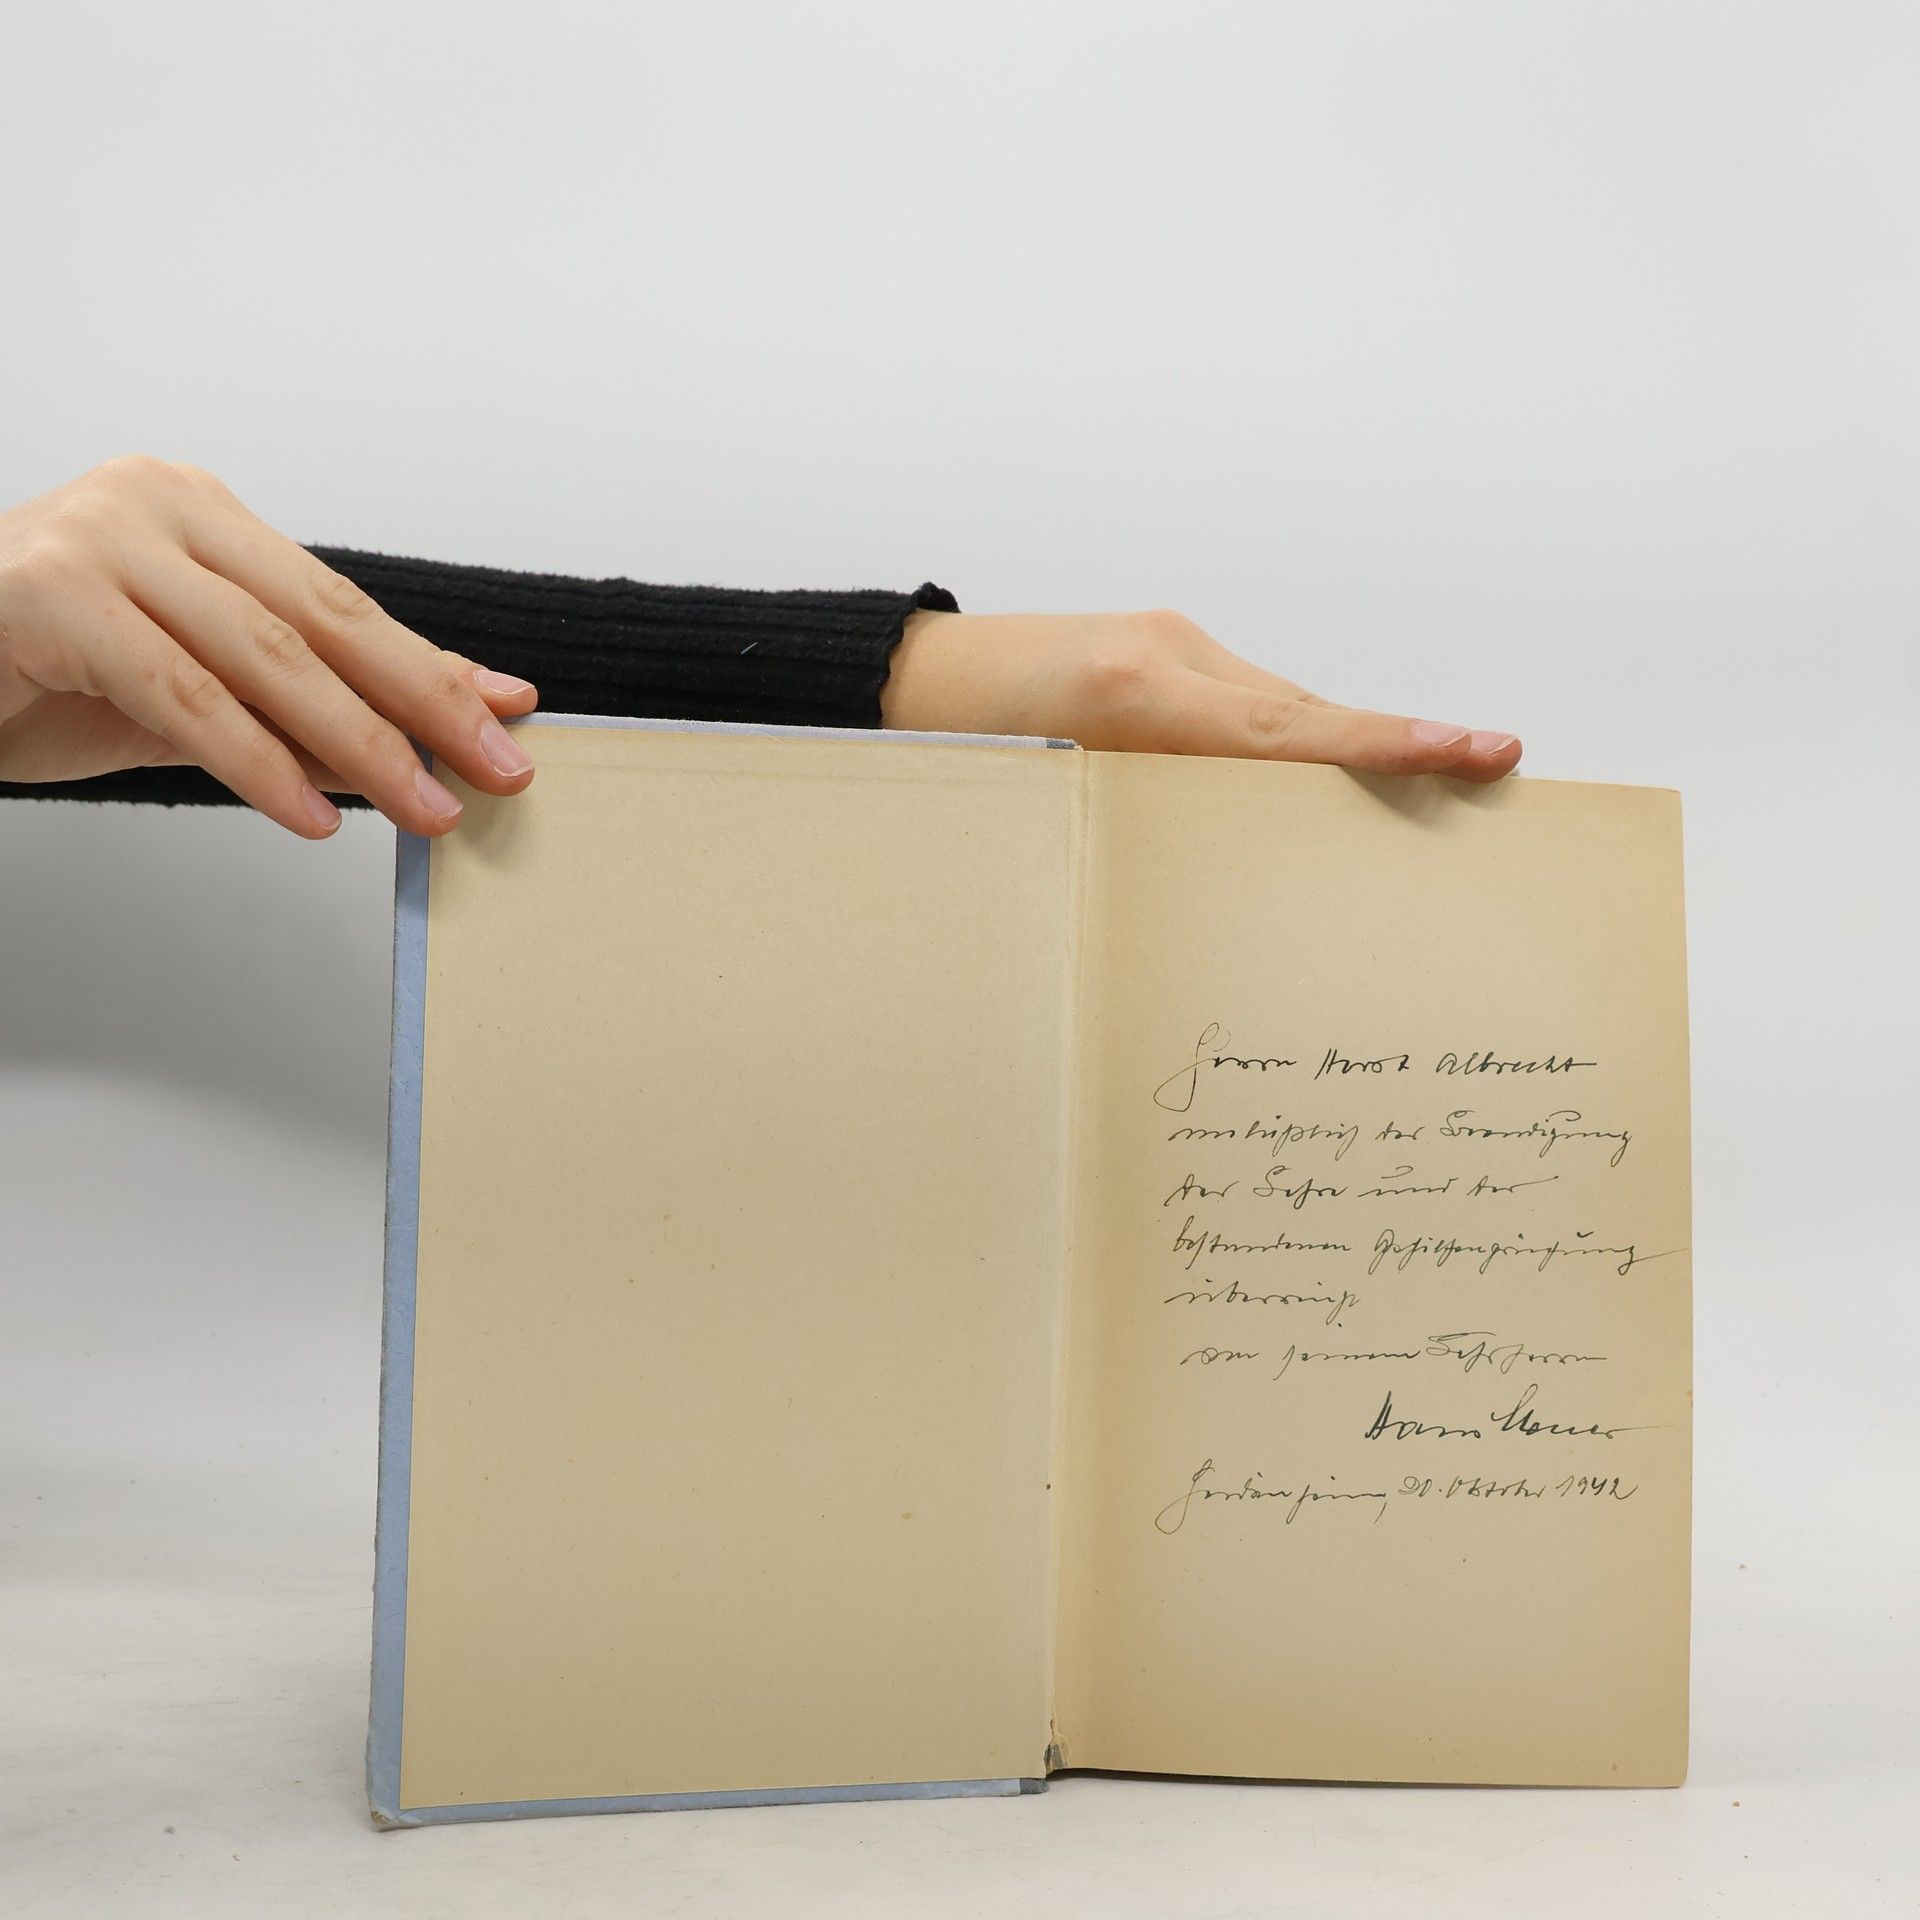 Herrn Horst Albrecht
anläßlich der Beendigung
der Lehre und der
bestandenen Gehilfenprüfung
überreicht
von seinem Lehrherrn
Hans
Heidenheim, 20. Oktober 1942